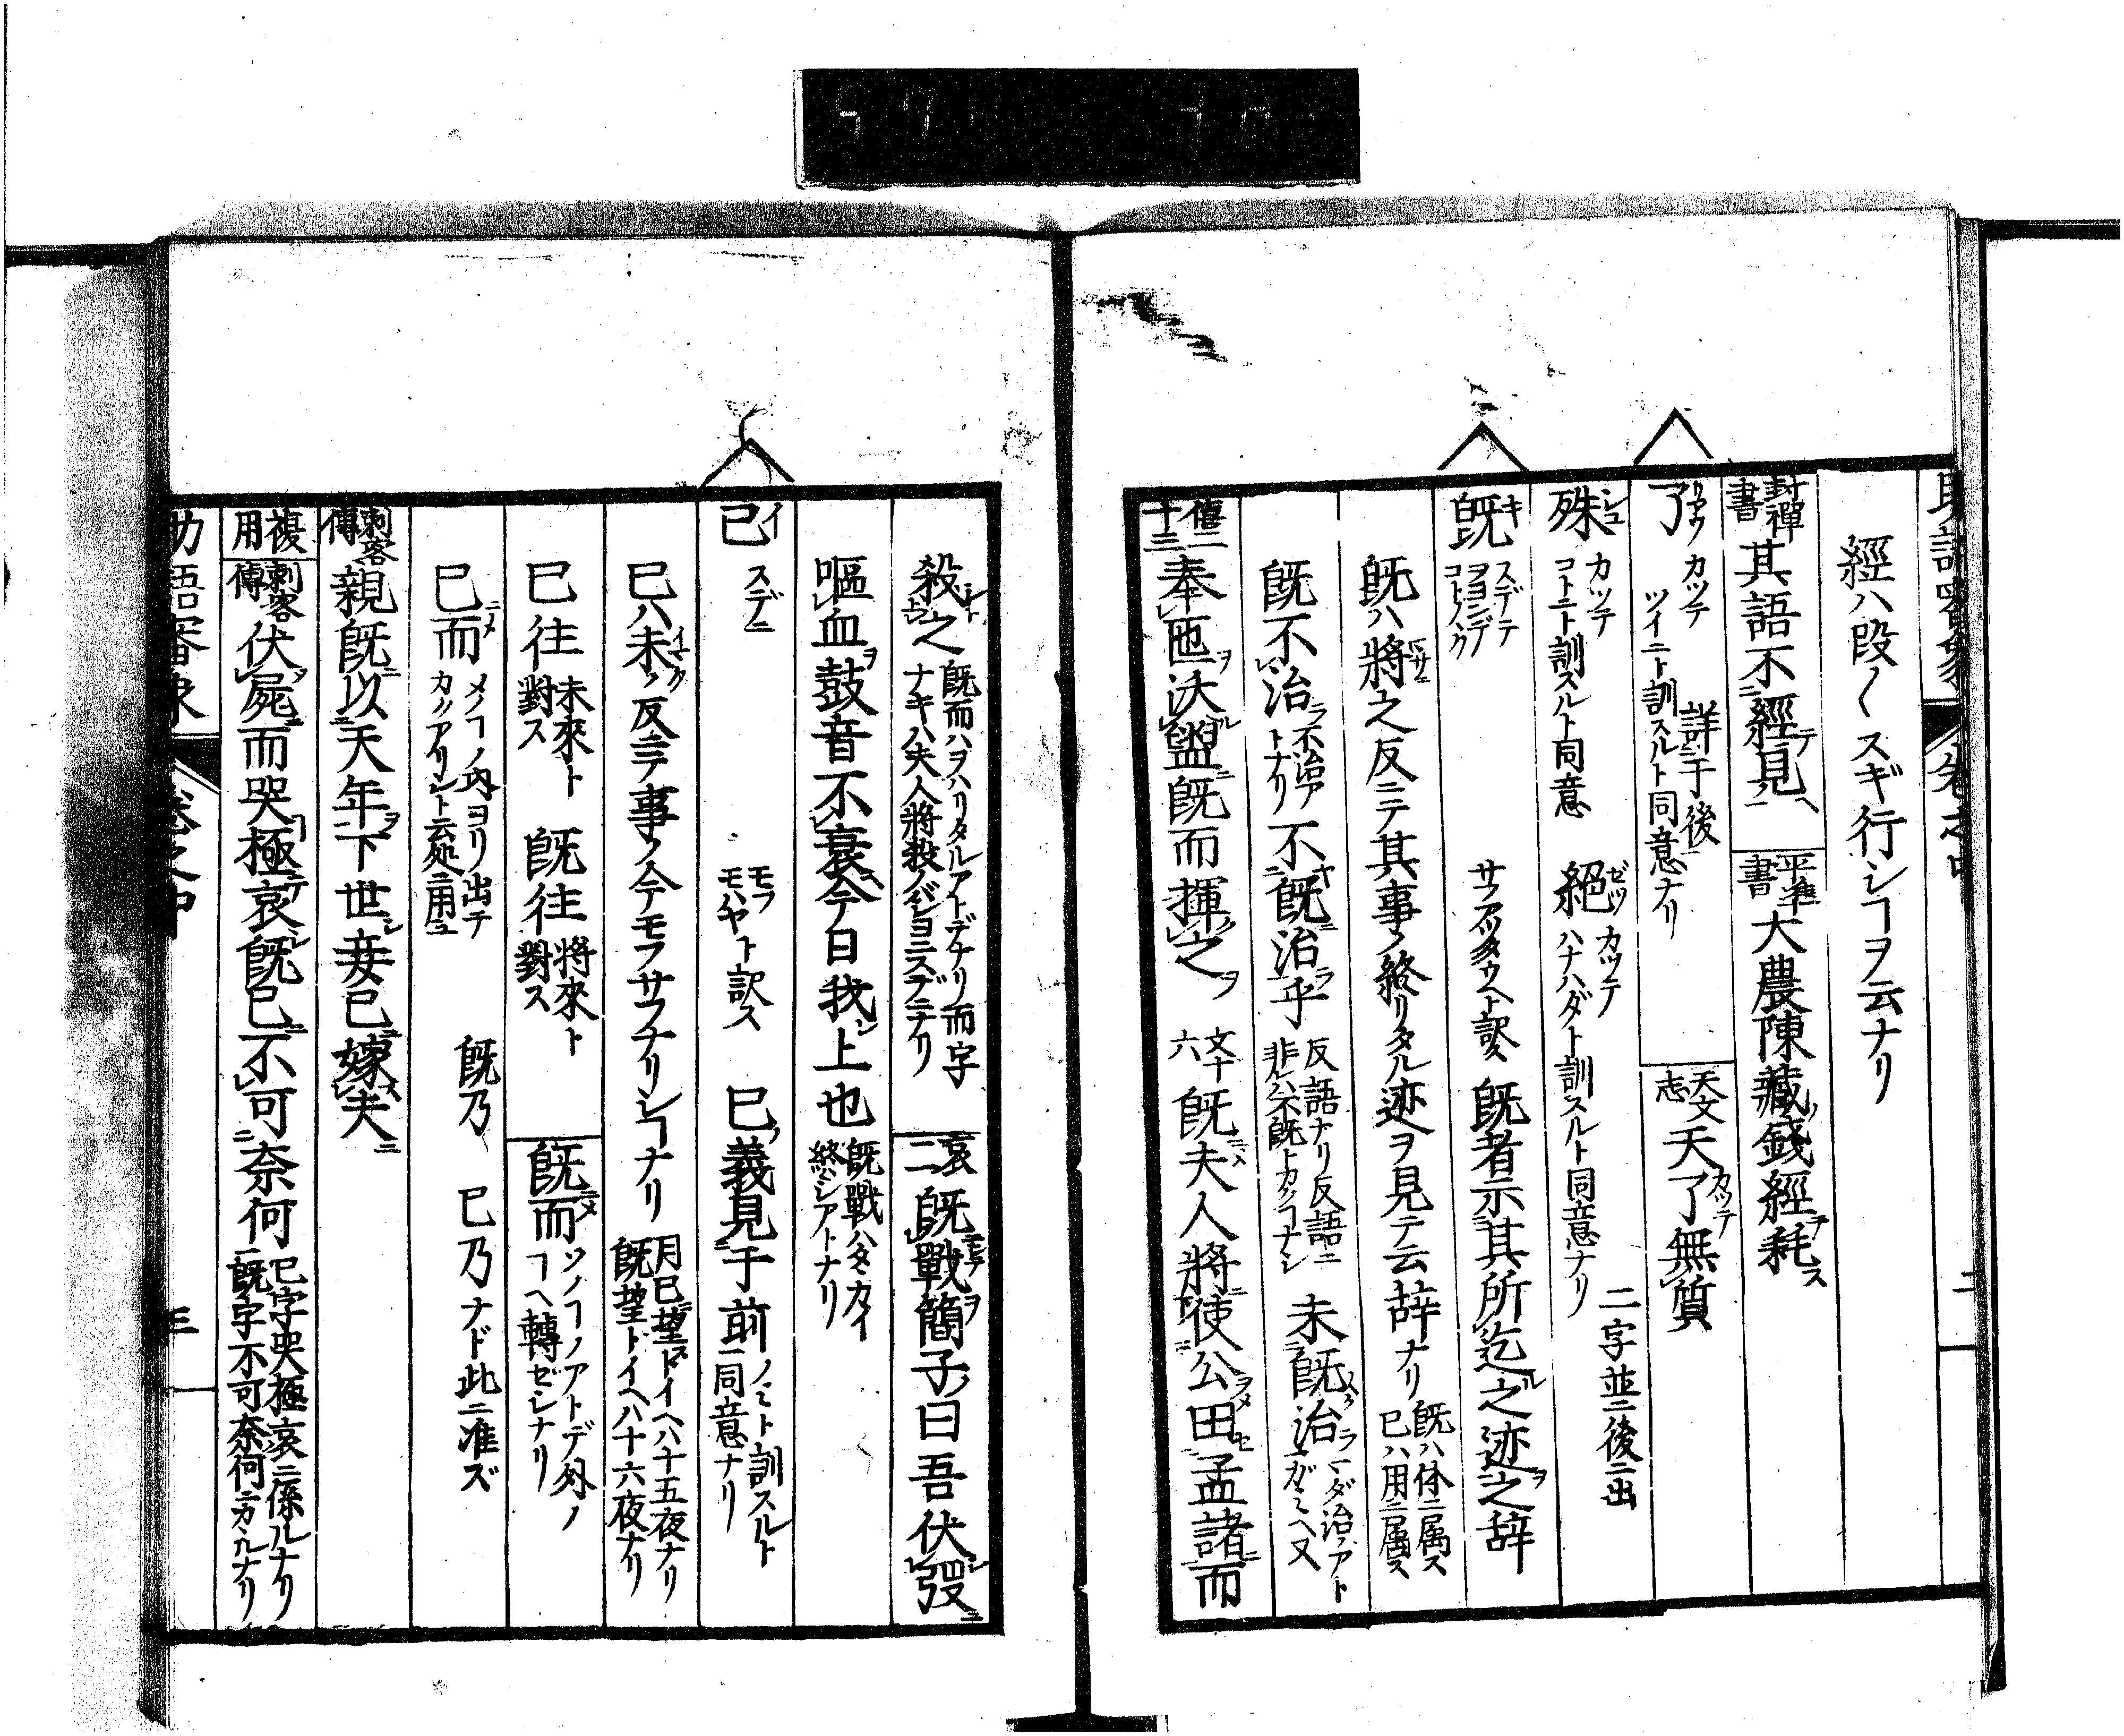 經ハ段〱スギ行シヿヲ云ナリ
封禪書 其語不經見 平準書 大農陳藏錢經耗
了 リヤウ カツテ ツイニト訓スルト同意ナリ 詳于後 天文志 天了無質
殊 シユ カツテ コトニト訓スルト同意 絕 ゼツ カツテ ハナハダト訓スルト同意ナリ 二字並ニ後ニ出
既 キ スデテ ヲヨンデ コト〲ク サフアツタウヘト訳ス 既者示其所迄之迹之辞
既ハ將之反ニテ其事ノ終リタル迹ヲ見テ云辞ナリ 既ハ体ニ属ス 已ハ用ニ属ス
既不治 不治アトナリ 不既治乎 反語ナリ反語ニ非レハ不既トカクヿナシ 未既治
僖二十三 奉匜沃盥既而揮之 文十六 既夫人將使公田孟諸而
殺之 既而ハヲハリタルアトデナリ而字ナキハ夫人將殺ノジヨニスデニナリ 哀二 既戰簡子曰吾伏弢
嘔血鼓音不衰今日我上也 既戰ハタヽカイ終シアトナリ
已 イ スデニ モフ モハヤト訳ス 已義見于前 ノミト訓スルト同意ナリ
已ハ未ノ反ニテ事ノ今テモフサフナリシヿナリ 月已望トイヘハ十五夜ナリ 既望トイヘハ十六夜ナリ
已往 未來ト對ス 既往 將來ト對ス 既而 ソノヿノアトデ外ノヿヘ轉ゼシナリ
已而 メノヿノ內ヨリ出テカクアリシト云処ニ用ユ 既乃 已乃ナド此ニ准ズ
刺客傳 親既以天年下世妾已嫁夫
複用 刺客傳 伏屍而哭極哀既已不可奈何 已字哭極哀ニ係ルナリ 既字不可奈何ニカヽルナリ
助語審象 卷之中 三